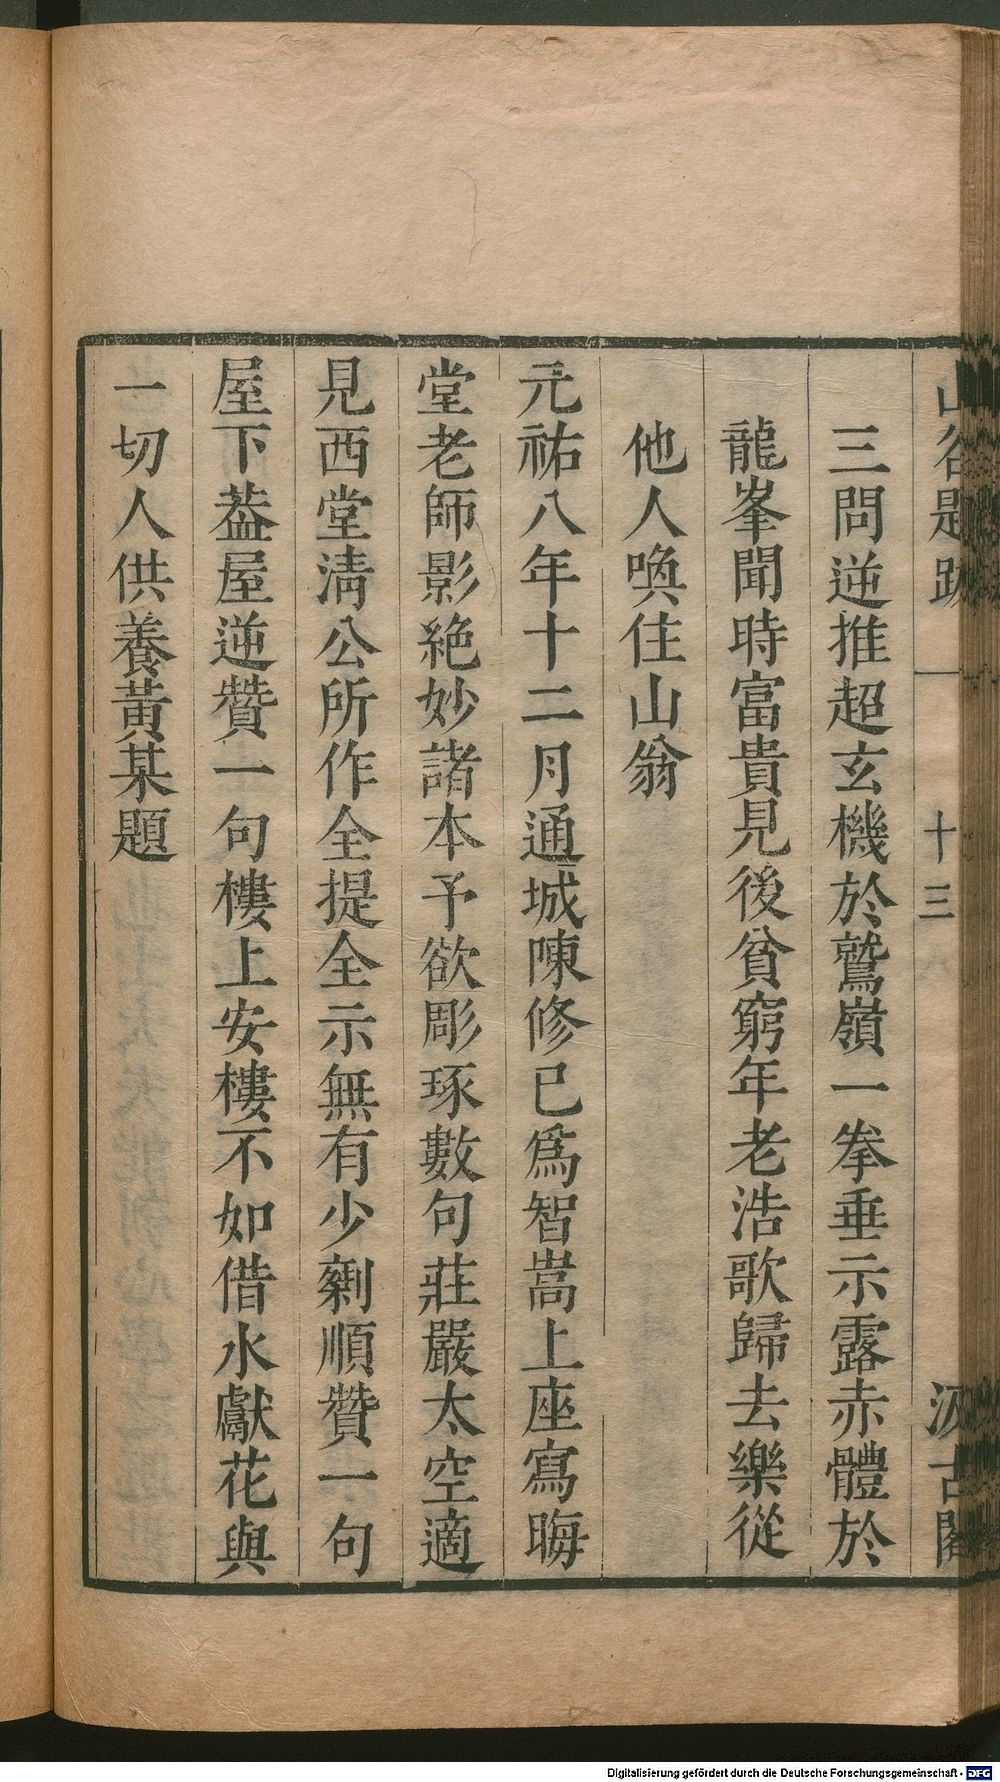 山谷題跋 一 十三 汲古閣
三問逆推超玄機於鷲嶺一拳垂示露赤體於
龍峯聞時富貴見後貧窮年老浩歌歸去樂從
他人喚住山翁
元祐八年十二月通城陳修已爲智嵩上座寫晦
堂老師影絶妙諸本予欲彫琢數句莊嚴太空適
見西堂淸公所作全提全示無有少剰順贊一句
屋下葢屋逆贊一句樓上安樓不如借水獻花與
一切人供養黃某題
Digitalisierung gefördert durch die Deutsche Forschungsgemeinschaft - DFG